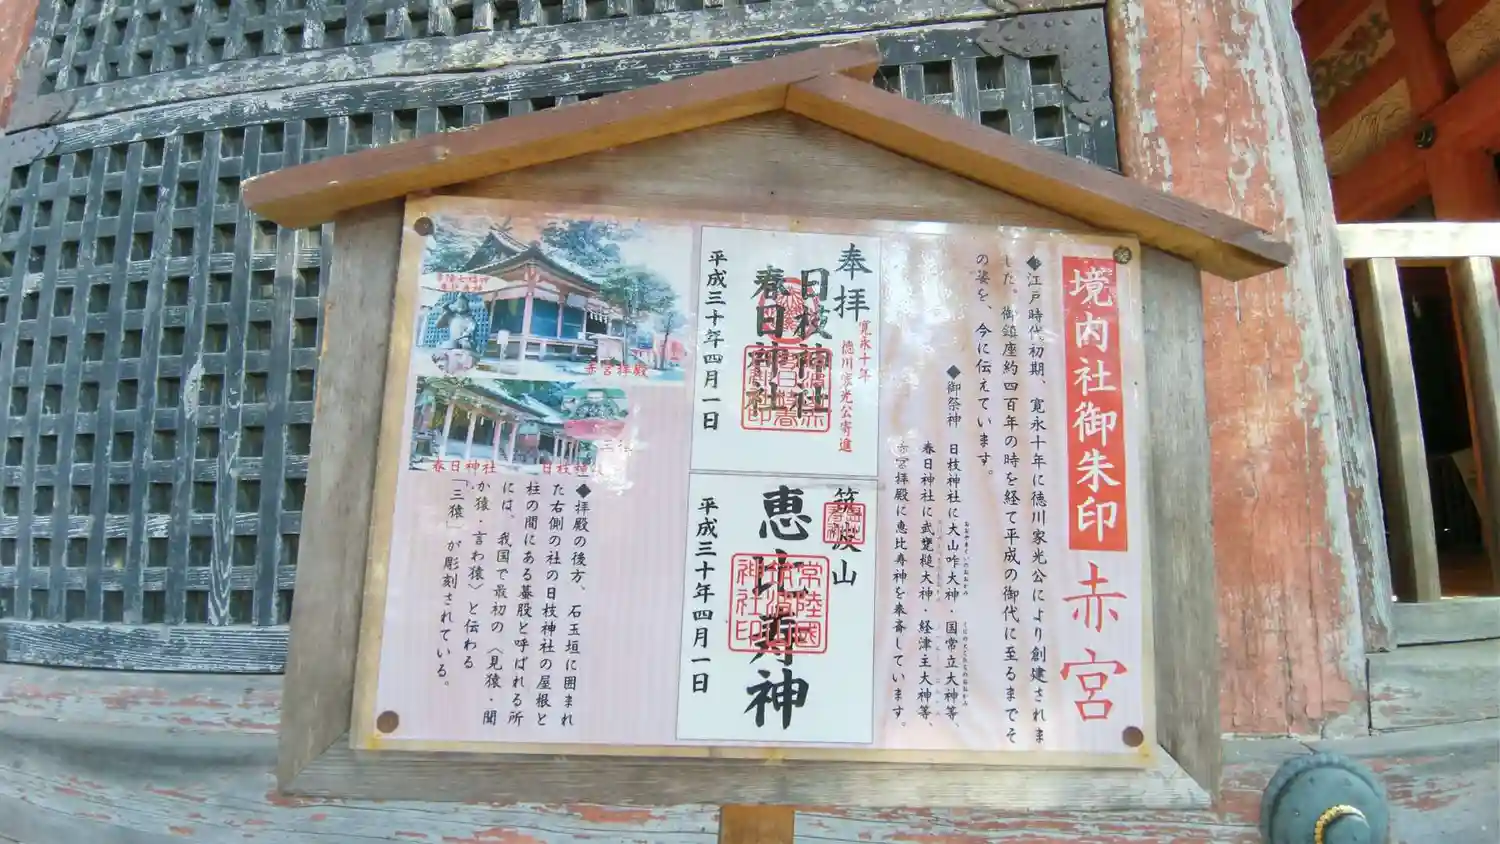 境内社御朱印 赤宮
◆江戸時代初期、寛永十年に徳川家光公により創建されま
した。御鎮座約四百年の時を経て平成の御代に至るまでそ
の姿を、今に伝えています。
◆御祭神 日枝神社に大山咋大神・国常立大神等、
春日神社に武甕槌大神・経津主大神等、
赤宮拝殿に恵比寿神を奉斎しています。
奉拝
寛永十年
徳川家光公寄進
日枝神社
春日神社
平成三十年四月一日
筑波山
恵比寿神
常陸國
筑波山
神社印
平成三十年四月一日
赤宮拝殿
春日神社
日枝神社
三猿
◆拝殿の後方、石玉垣に囲まれ
た右側の社の日枝神社の屋根と
柱の間にある蟇股と呼ばれる所
には、我国で最初の〈見猿・聞
か猿・言わ猿〉と伝わる
「三猿」が彫刻されている。